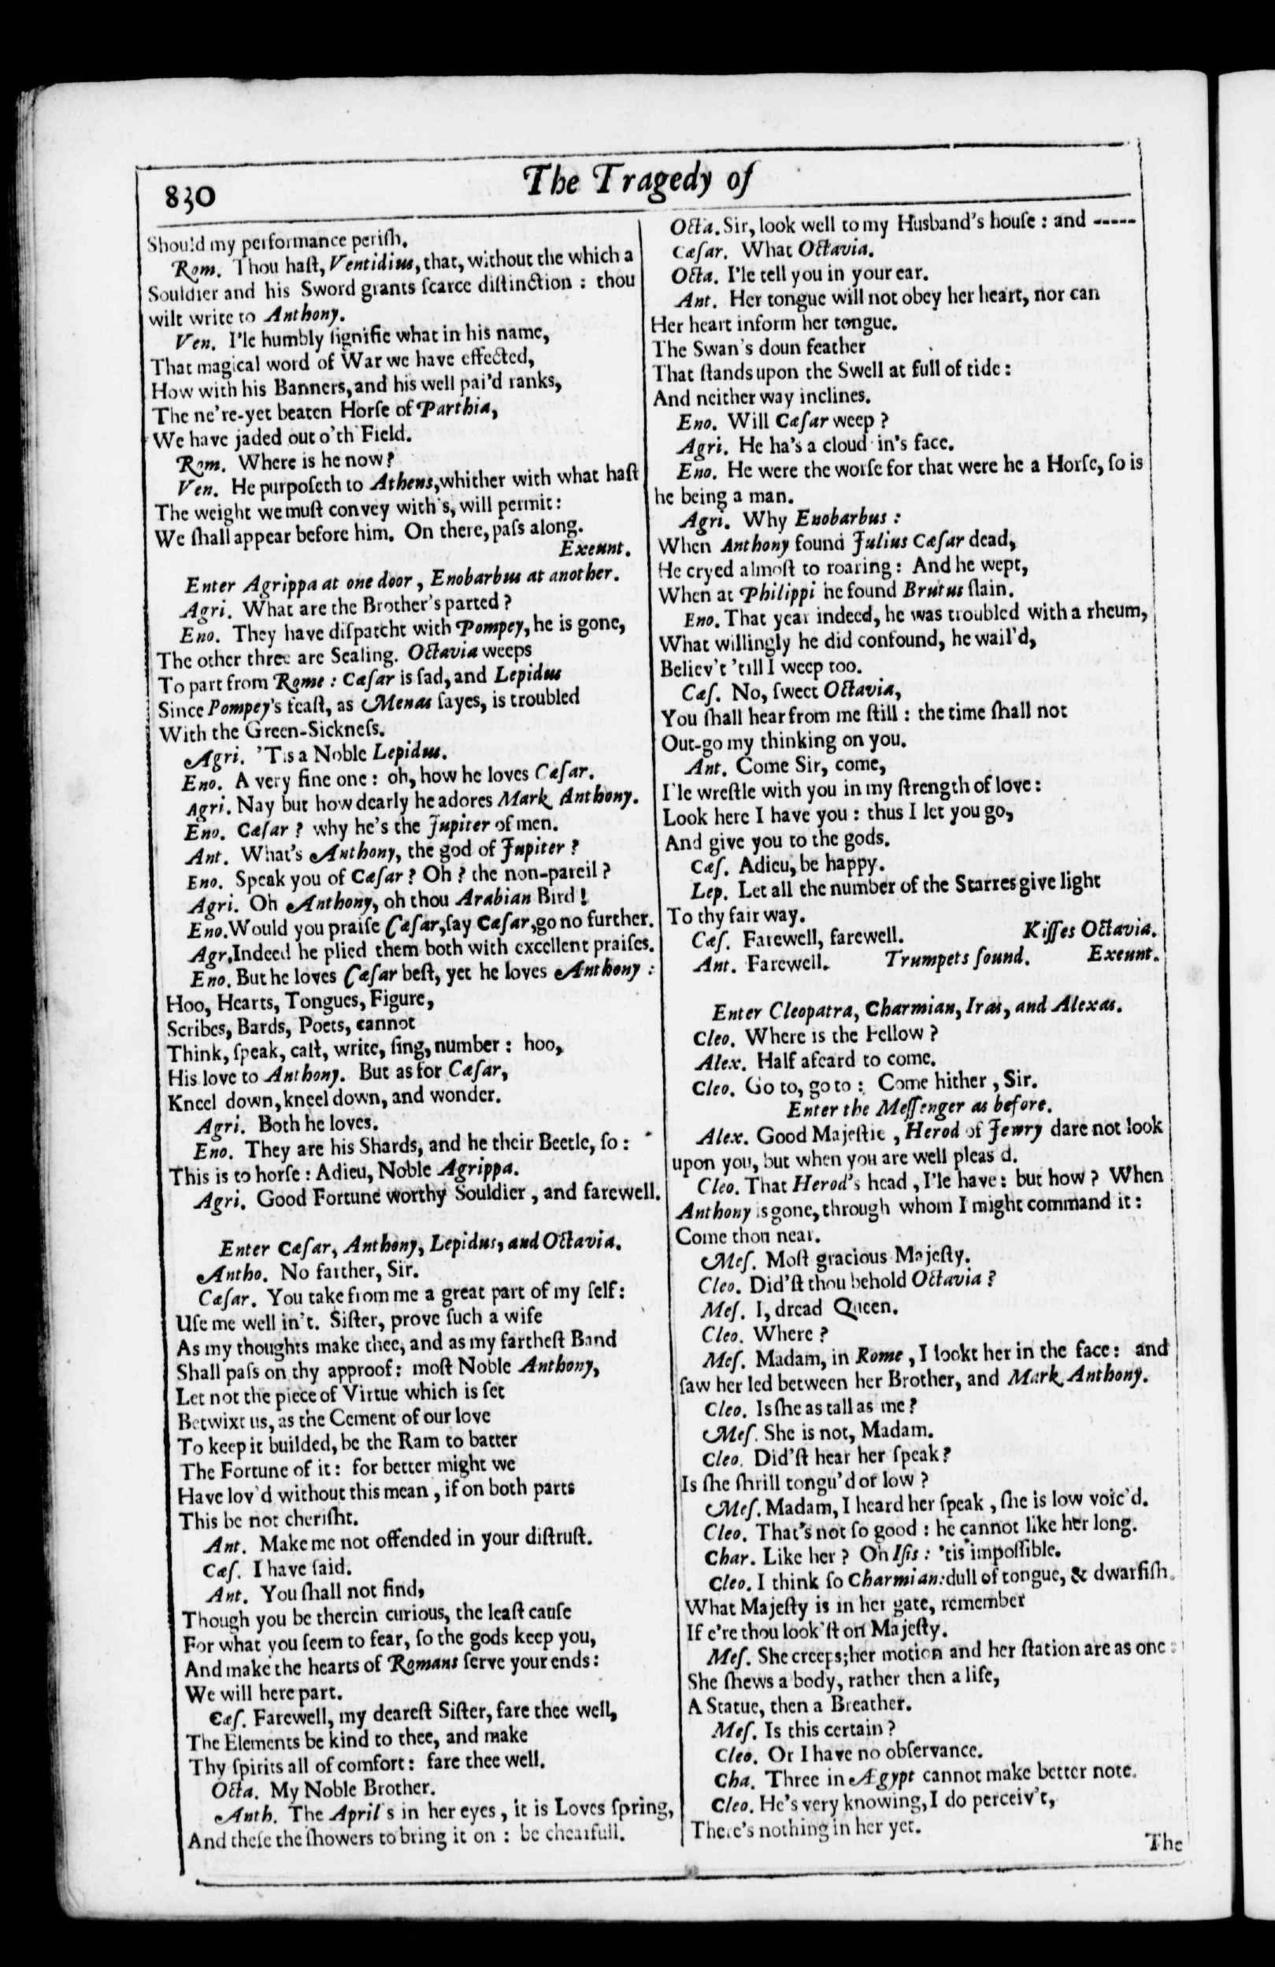 830
The Tragedy of
Should my performance periſh.
Rom. Thou haſt, Ventidius, that, without the which a
Souldier and his Sword grants ſcarce diſtinction : thou
wilt write to Anthony.
Ven. I'le humbly ſignifie what in his name,
That magical word of War we have effected,
How with his Banners, and his well pai'd ranks,
The ne're-yet beaten Horſe of Parthia,
We have jaded out o'th Field.
Rom. Where is he now?
Ven. He purpoſeth to Athens, whither with what haſt
The weight we muſt convey with's, will permit:
We ſhall appear before him. On there, paſs along.
Exeunt.
Enter Agrippa at one door, Enobarbus at another.
Agri. What are the Brother's parted ?
Eno. They have diſpatcht with Pompey, he is gone,
The other three are Sealing. Octavia weeps
To part from Rome : Cæſar is ſad, and Lepidus
Since Pompey's feaſt, as Menas ſayes, is troubled
With the Green-Sickneſs.
Agri. 'Tis a Noble Lepidus.
Eno. A very fine one : oh, how he loves Cæſar.
Agri. Nay but how dearly he adores Mark Anthony.
Eno. Cæſar ? why he's the Jupiter of men.
Ant. What's Anthony, the god of Jupiter ?
Eno. Speak you of Cæſar ? Oh ? the non-pareil ?
Agri. Oh Anthony, oh thou Arabian Bird !
Eno. Would you praiſe Cæſar, ſay Cæſar, go no further.
Agr. Indeed he plied them both with excellent praiſes.
Eno. But he loves Cæſar beſt, yet he loves Anthony :
Hoo, Hearts, Tongues, Figure,
Scribes, Bards, Poets, cannot
Think, ſpeak, caſt, write, ſing, number : hoo,
His love to Anthony. But as for Cæſar,
Kneel down, kneel down, and wonder.
Agri. Both he loves.
Eno. They are his Shards, and he their Beetle, ſo :
This is to horſe : Adieu, Noble Agrippa.
Agri. Good Fortune worthy Souldier, and farewell.
Enter Cæſar, Anthony, Lepidus, and Octavia.
Antho. No farther, Sir.
Cæſar. You take from me a great part of my ſelf :
Uſe me well in't. Siſter, prove ſuch a wife
As my thoughts make thee, and as my fartheſt Band
Shall paſs on thy approof : moſt Noble Anthony,
Let not the piece of Virtue which is ſet
Betwixt us, as the Cement of our love
To keep it builded, be the Ram to batter
The Fortune of it : for better might we
Have lov'd without this mean, if on both parts
This be not cheriſht.
Ant. Make me not offended in your diſtruſt.
Cæſ. I have ſaid.
Ant. You ſhall not find,
Though you be therein curious, the leaſt cauſe
For what you ſeem to fear, ſo the gods keep you,
And make the hearts of Romans ſerve your ends :
We will here part.
Cæſ. Farewell, my deareſt Siſter, fare thee well,
The Elements be kind to thee, and make
Thy ſpirits all of comfort : fare thee well.
Octa. My Noble Brother.
Anth. The April's in her eyes, it is Loves ſpring,
And theſe the ſhowers to bring it on : be chearfull.
Octa. Sir, look well to my Husband's houſe : and -----
Cæſar. What Octavia.
Octa. I'le tell you in your ear.
Ant. Her tongue will not obey her heart, nor can
Her heart inform her tongue.
The Swan's doun feather
That ſtands upon the Swell at full of tide :
And neither way inclines.
Eno. Will Cæſar weep ?
Agri. He ha's a cloud in's face.
Eno. He were the worſe for that were he a Horſe, ſo is
he being a man.
Agri. Why Enobarbus :
When Anthony found Julius Cæſar dead,
He cryed almoſt to roaring : And he wept,
When at Philippi he found Brutus ſlain.
Eno. That year indeed, he was troubled with a rheum,
What willingly he did confound, he wail'd,
Believ't 'till I weep too.
Cæſ. No, ſweet Octavia,
You ſhall hear from me ſtill : the time ſhall not
Out-go my thinking on you.
Ant. Come Sir, come,
I'le wreſtle with you in my ſtrength of love :
Look here I have you : thus I let you go,
And give you to the gods.
Cæſ. Adieu, be happy.
Lep. Let all the number of the Starres give light
To thy fair way.
Cæſ. Farewell, farewell. Kiſſes Octavia.
Ant. Farewell. Trumpets ſound. Exeunt.
Enter Cleopatra, Charmian, Iras, and Alexas.
Cleo. Where is the Fellow ?
Alex. Half afeard to come.
Cleo. Go to, go to : Come hither, Sir.
Enter the Meſſenger as before.
Alex. Good Majeſtie, Herod of Jewry dare not look
upon you, but when you are well pleas'd.
Cleo. That Herod's head, I'le have : but how ? When
Anthony is gone, through whom I might command it :
Come thou near.
Meſ. Moſt gracious Majeſty.
Cleo. Did'ſt thou behold Octavia ?
Meſ. I, dread Queen.
Cleo. Where ?
Meſ. Madam, in Rome, I lookt her in the face : and
ſaw her led between her Brother, and Mark Anthony.
Cleo. Is ſhe as tall as me ?
Meſ. She is not, Madam.
Cleo. Did'ſt hear her ſpeak ?
Is ſhe ſhrill tongu'd or low ?
Meſ. Madam, I heard her ſpeak, ſhe is low voic'd.
Cleo. That's not ſo good : he cannot like her long.
Char. Like her ? Oh Iſis : 'tis impoſſible.
Cleo. I think ſo Charmian: dull of tongue, & dwarfiſh.
What Majeſty is in her gate, remember
If e're thou look'ſt on Majeſty.
Meſ. She creeps; her motion and her ſtation are as one :
She ſhews a body, rather then a life,
A Statue, then a Breather.
Meſ. Is this certain ?
Cleo. Or I have no obſervance.
Cha. Three in Ægypt cannot make better note.
Cleo. He's very knowing, I do perceiv't,
There's nothing in her yet.
The